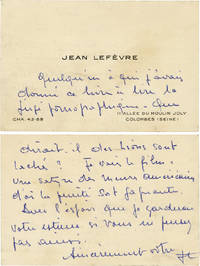 JEAN LEFÈVRE
Quelqu'un à qui j'avais
donné ce livre à lire l'a
jugé pornographique. Que
CHA. 42-68
11 ALLÉE DU MOULIN JOLY
COLOMBES (SEINE)
dirait-il des lions sont
lâchés? Je vais le film.
Une satyre des mœurs américaines
d'où la pureté est
Avec l'espoir que je garderai
votre estime si vous ne pensez
pas
Amicalement votre